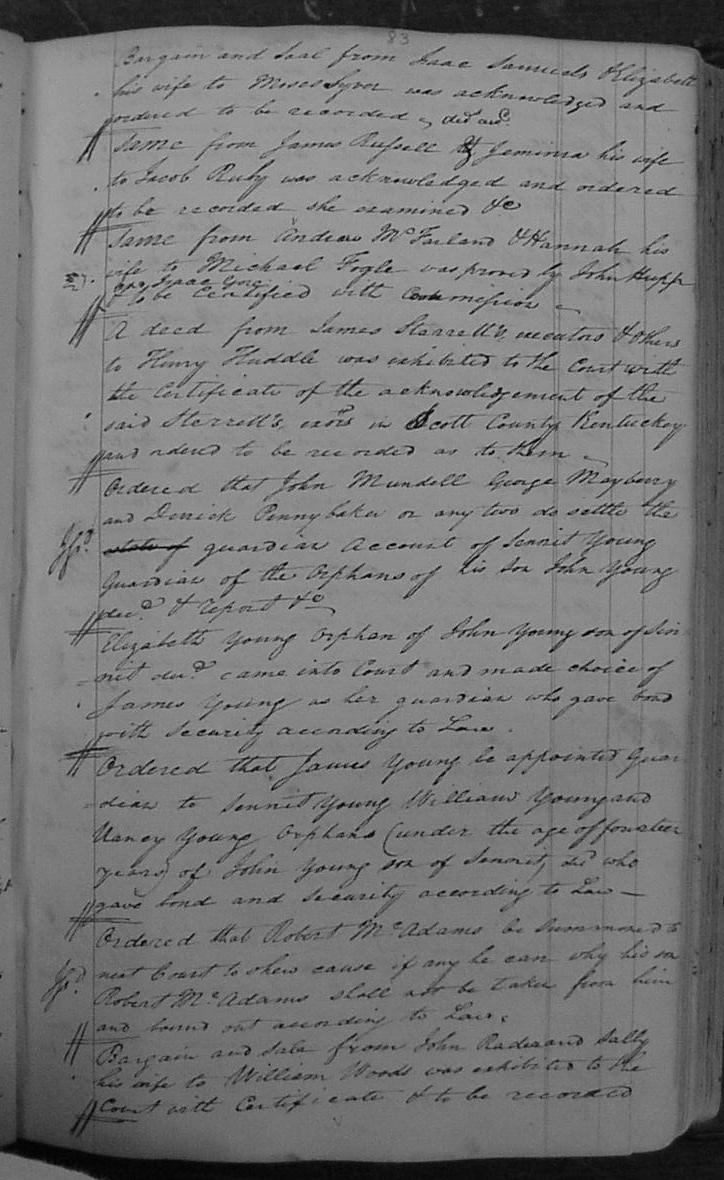 83
Bargain and Saal from Isaac Samuels & Elizabeth
his wife to Moses was acknowledged and
ordered to be recorded
Same from James Russell & Jemima his wife
to Jacob Ruby was acknowledged and ordered
to be recorded she examined &c
Same from Andrew McFarland & Hannah his
wife to Michael Fogle was proved by John Hupp
and Isaac
& to be Certified with Commission
A deed from James Sterrett's, executors & others
to Henry Huddle was exhibited to the Court with
the Certificate of the acknowledgement of the
said Sterrett's, exors in Scott County Kentucky
and ordered to be recorded as to them
Ordered that John Mundell George Mayberry
and Derrick Pennybaker or any two do settle the
guardian Account of Sennit Young
Guardian of the Orphans of his son John Young
decd. & report &c
Elizabeth Young Orphan of John Young son of Sin
nit decd. came into Court and made choice of
James Young as her guardian who gave bond
with Security according to Law.
Ordered that James Young be appointed Guar
-dian to Sennit Young William Young and
Nancy Young Orphans (under the age of fourteen
years) of John Young son of Sennit, decd who
gave bond and Security according to Law—
Ordered that Robert McAdams be Summoned to
next Court to shew cause if any he can why his son
Robert McAdams shall not be taken from him
and bound out according to Law.
Bargain and Sale from John Rader and Sally
his wife to William Woods was exhibited to the
Court with Certificate & to be recorded